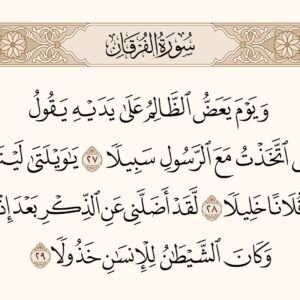 سُورَةُ الفُرْقَانِ
وَيَوْمَ يَعَضُّ الظَّالِمُ عَلَىٰ يَدَيْهِ يَقُولُ
اتَّخَذْتُ مَعَ الرَّسُولِ سَبِيلًا ٢٧ يَٰوَيْلَتَىٰ
فُلَانًا خَلِيلًا ٢٨ لَّقَدْ أَضَلَّنِي عَنِ الذِّكْرِ بَعْدَ إِذْ
وَكَانَ الشَّيْطَٰنُ لِلْإِنسَٰنِ خَذُولًا ٢٩